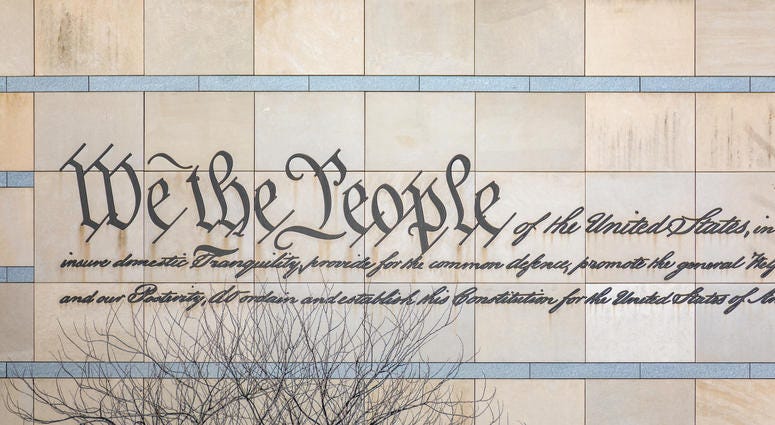 We the People of the United States, in
insure domestic Tranquility, provide for the common defence, promote the general Welf
and our Posterity, do ordain and establish this Constitution for the United States of Am